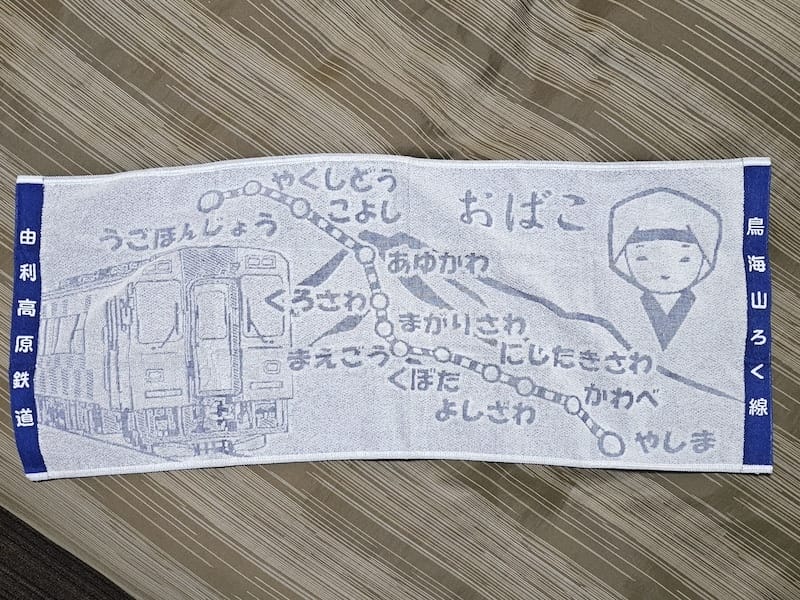 由利高原鉄道
やくしどう
こよし
うごほんじょう
おばこ
あゆかわ
くろさわ
まがりさわ
まえごう
にしたきさわ
くぼた
かわべ
よしざわ
やしま
鳥海山ろく線